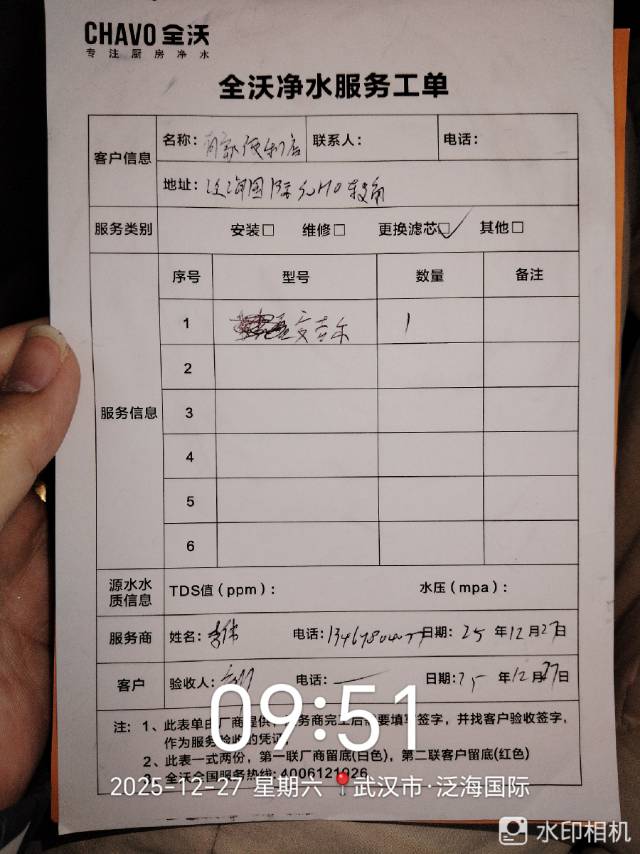 CHAVO 全沃
专注厨房净水
全沃净水服务工单
客户信息
名称： 便利店 联系人： 电话：
地址：泛海国际SOHO
服务类别 安装□ 维修□ 更换滤芯□✓ 其他□
服务信息
序号 型号 数量 备注
1 1
2
3
4
5
6
源水水质信息 TDS值（ppm）： 水压（mpa）：
服务商 姓名：李伟 电话： 日期：25 年 12 月 27 日
客户 验收人： 电话：— 日期：25 年 12 月 27 日
注：1、此表单由厂商提供，服务商完工后需要填写签字，并找客户验收签字，
作为服务验收的凭证；
2、此表一式两份，第一联厂商留底(白色)，第二联客户留底(红色)
3、全沃全国服务热线：4006121926
09:51
2025-12-27 星期六 武汉市·泛海国际
水印相机